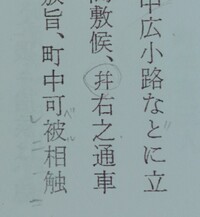 中広小路なとに立
敷候、幷右之通車
旨、町中可被相触